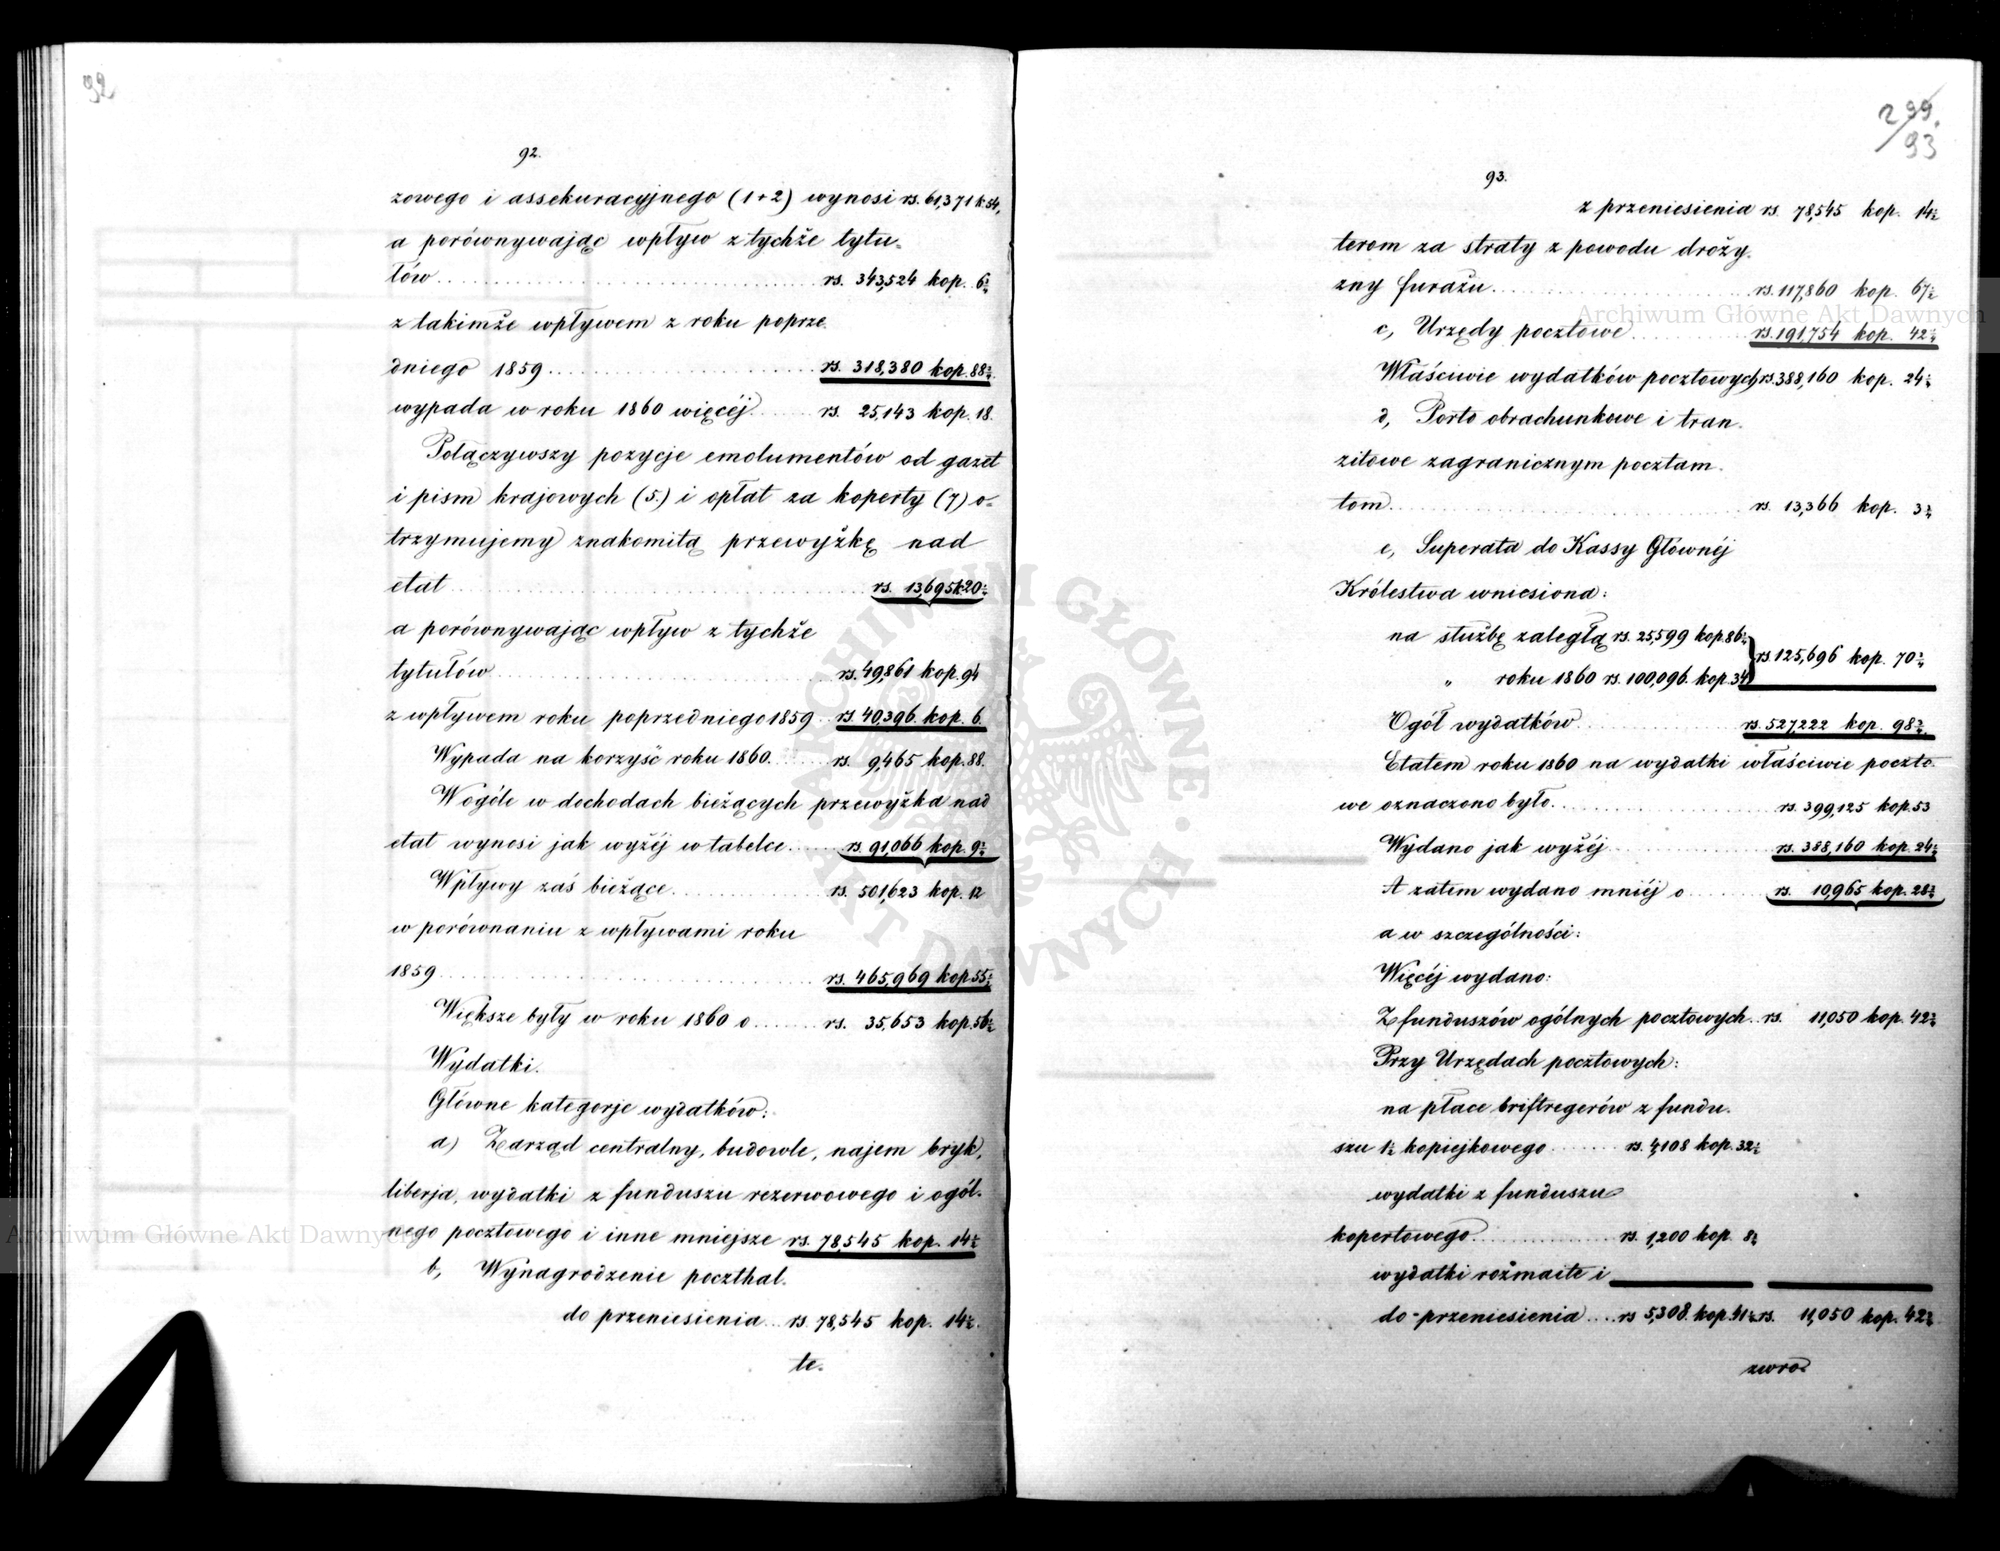 92
92.
zowego i assekuracyjnego (1+2) wynosi rs. 61,371 k. 54,
a porównywając wpływ z tychże tytu-
łów rs. 343,524 kop. 6½
z takimże wpływem z roku poprze-
dniego 1859 rs. 318,380 kop. 88½
wypada w roku 1860 więcéj rs. 25,143 kop. 18.
Połączywszy pozycje emolumentów od gazet
i pism krajowych (5) i opłat za koperty (7) o-
trzymujemy znakomitą przewyżkę nad
etat rs. 13,695 k. 20½
a porównywając wpływ z tychże
tytułów rs. 49,861 kop. 94
z wpływem roku poprzedniego 1859 rs. 40,396 kop. 6.
Wypada na korzyść roku 1860. rs. 9,465 kop. 88.
W ogóle w dochodach bieżących przewyżka nad
etat wynosi jak wyżéj w tabelce rs. 91,066 kop. 9½
Wpływy zaś bieżące rs. 501,623 kop. 12
w porównaniu z wpływami roku
1859 rs. 465,969 kop. 55½
Większe były w roku 1860 o rs. 35,653 kop. 56½
Wydatki.
Główne kategorje wydatków:
a) Zarząd centralny, budowle, najem bryk,
liberja, wydatki z funduszu rezerwowego i ogól-
nego pocztowego i inne mniejsze rs. 78,545 kop. 14½
b, Wynagrodzenie poczthal-
do przeniesienia rs. 78,545 kop. 14½.
te-
299.
93
93.
z przeniesienia rs. 78,545 kop. 14½
terom za straty z powodu droży-
zny furażu rs. 117,860 kop. 67½
c, Urzędy pocztowe rs. 191,754 kop. 42½
Właściwie wydatków pocztowych rs. 388,160 kop. 24½
d, Porto obrachunkowe i tran-
zitowe zagranicznym pocztam-
tom rs. 13,366 kop. 3½
e, Superata do Kassy Głównéj
Królestwa wniesiona:
na służbę zaległą rs. 25,599 kop. 86½
rs 125,696 kop. 70½
" roku 1860 rs. 100,096. kop. 34
Ogół wydatków rs. 527,222 kop. 98½
Etatem roku 1860 na wydatki właściwie poczto-
we oznaczono było rs. 399,125 kop. 53
Wydano jak wyżéj rs. 388,160 kop. 24½
A zatem wydano mniéj o rs. 10,965 kop. 28½
a w szczególności:
Więcéj wydano:
Z funduszów ogólnych pocztowych rs. 11,050 kop. 42½
Przy Urzędach pocztowych:
na płace briftregerów z fundu-
szu 1½ kopiejkowego rs. 4,108 kop. 32½
wydatki z funduszu
kopertowego rs. 1,200 kop. 8½
wydatki rożmaite i
do-przeniesienia rs 5,308. kop. 41½ rs. 11,050 kop. 42½
zwro-
Archiwum Główne Akt Dawnych
Archiwum Główne Akt Dawnych
ARCHIWUM GŁÓWNE · AKT DAWNYCH ·